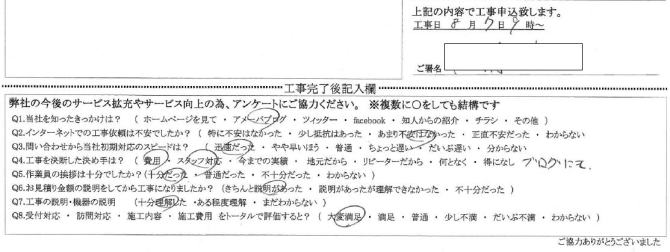 上記の内容で工事申込致します。
工事日 8 月 7 日 9 時～
ご署名
工事完了後記入欄
弊社の今後のサービス拡充やサービス向上の為、アンケートにご協力ください。 ※複数に○をしても結構です
Q1.当社を知ったきっかけは？ （ ホームページを見て ・ アメーバブログ ・ ツィッター ・ facebook ・ 知人からの紹介 ・ チラシ ・ その他 ）
Q2.インターネットでの工事依頼は不安でしたか？ （ 特に不安はなかった ・ 少し抵抗はあった ・ あまり不安はない ・ 正直不安だった ・ わからない
Q3.問い合わせから当社初期対応のスピードは？ （ 迅速だった ・ やや早いほう ・ 普通 ・ ちょっと遅い ・ だいぶ遅い ・ 分からない
Q4.工事を決断した決め手は？ （ 費用 ・ スタッフ対応 ・ 今までの実績 ・ 地元だから ・ リピーターだから ・ 何となく ・ 得になし ブログにて、
Q5.作業員の挨拶は十分でしたか？ （十分だった ・ 普通だった ・ 不十分だった ・ わからない ）
Q6.お見積り金額の説明をしてから工事になりましたか？ （きちんと説明があった ・ 説明があったが理解できなかった ・ 不十分だった ）
Q7.工事の説明・機器の説明 （十分理解した ・ある程度理解 ・ まだわからない）
Q8.受付対応 ・ 訪問対応 ・ 施工内容 ・ 施工費用 をトータルで評価すると？ （ 大変満足 ・ 満足 ・ 普通 ・ 少し不満 ・ だいぶ不満 ・ わからない ）
ご協力ありがとうございました